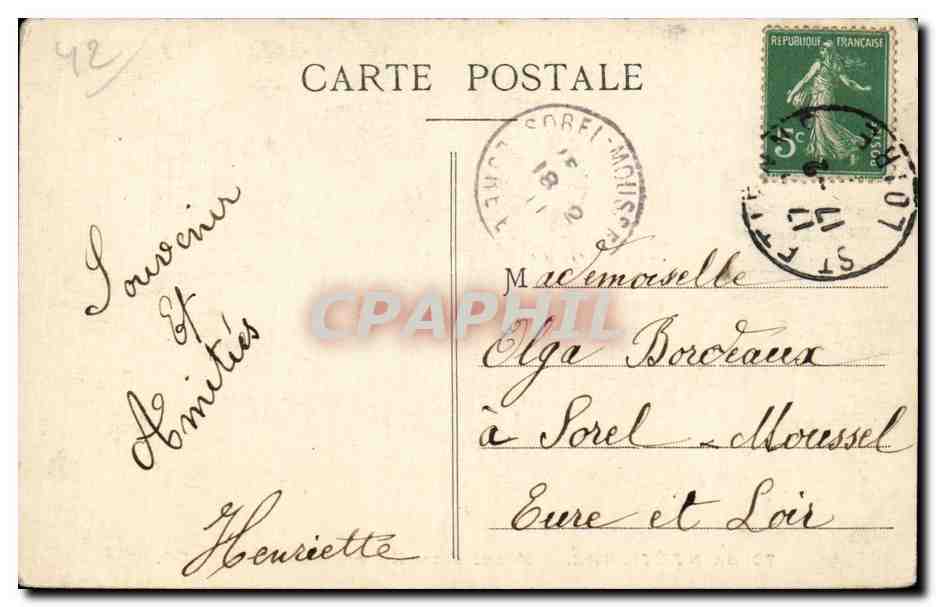 42
CARTE POSTALE
REPUBLIQUE FRANÇAISE
5c
POSTES
ST ETIENNE
LOIRE
17
SOREL-MOUSSEL
18
2
11
Souvenir
Et
Amitiés
Henriette
Mademoiselle
CPAPHIL
Olga Bordeaux
à Sorel-Moussel
Eure et Loir